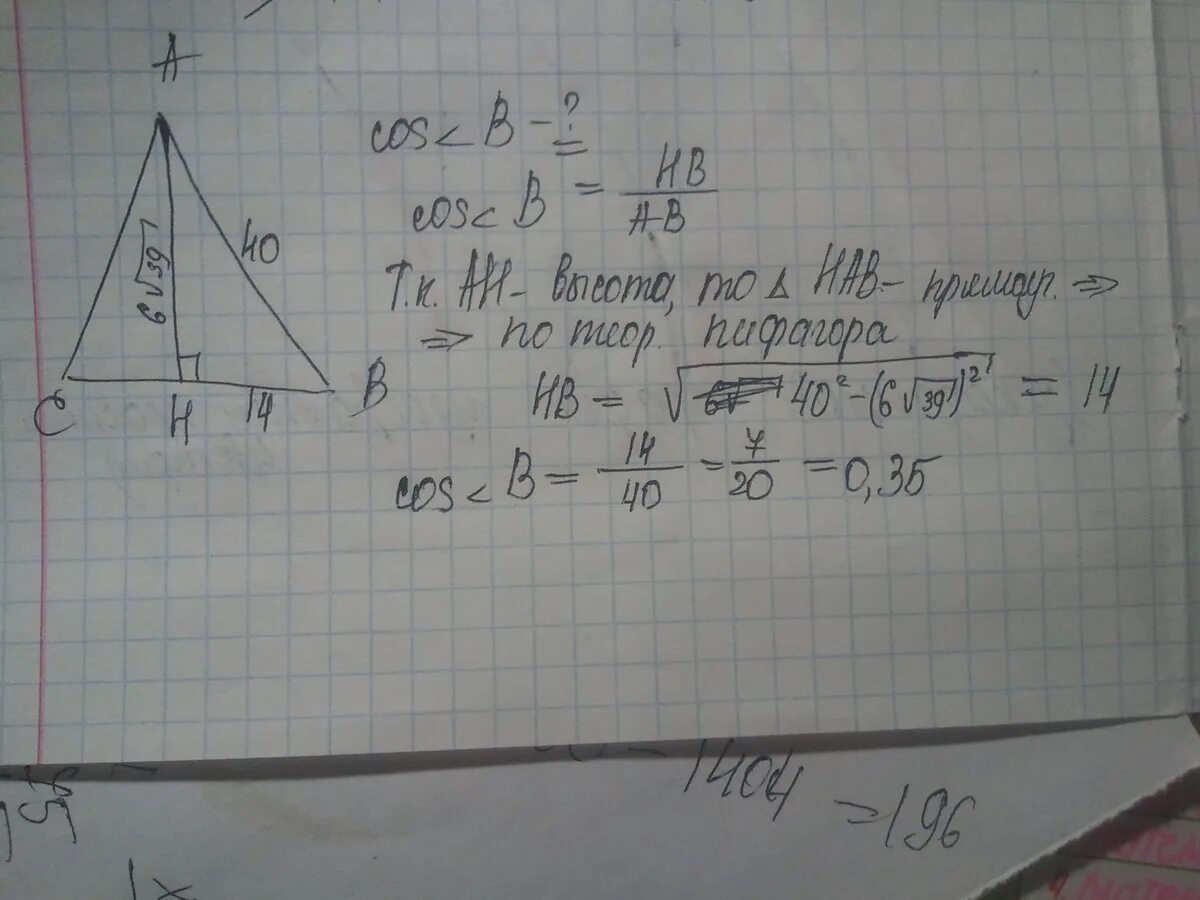 A
6√39
40
C
H
14
B
cos< B - ?
cos< B = HB/AB
Т.к. АН- высота, то △ НАВ- прямоуг. ⇒
⇒ по теор. пифагора
HB = √(40² - (6√39)²) = 14
cos< B = 14/40 = 7/20 = 0,35
1404
=196
x